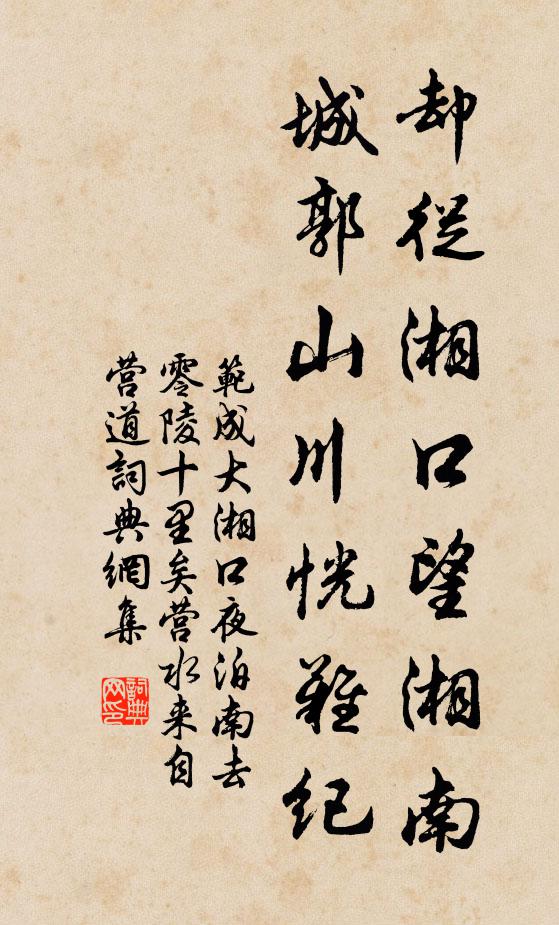 却從湘口望湘南
城郭山川恍難紀
範成大湘口夜泊南去
零陵十里矣营水来自
营道詞典網集
詞典網印